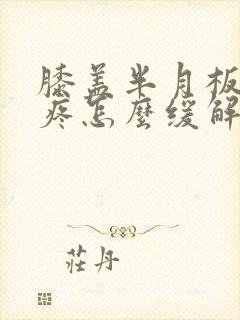 膝盖半月板
疼怎麽缓解
莊丹